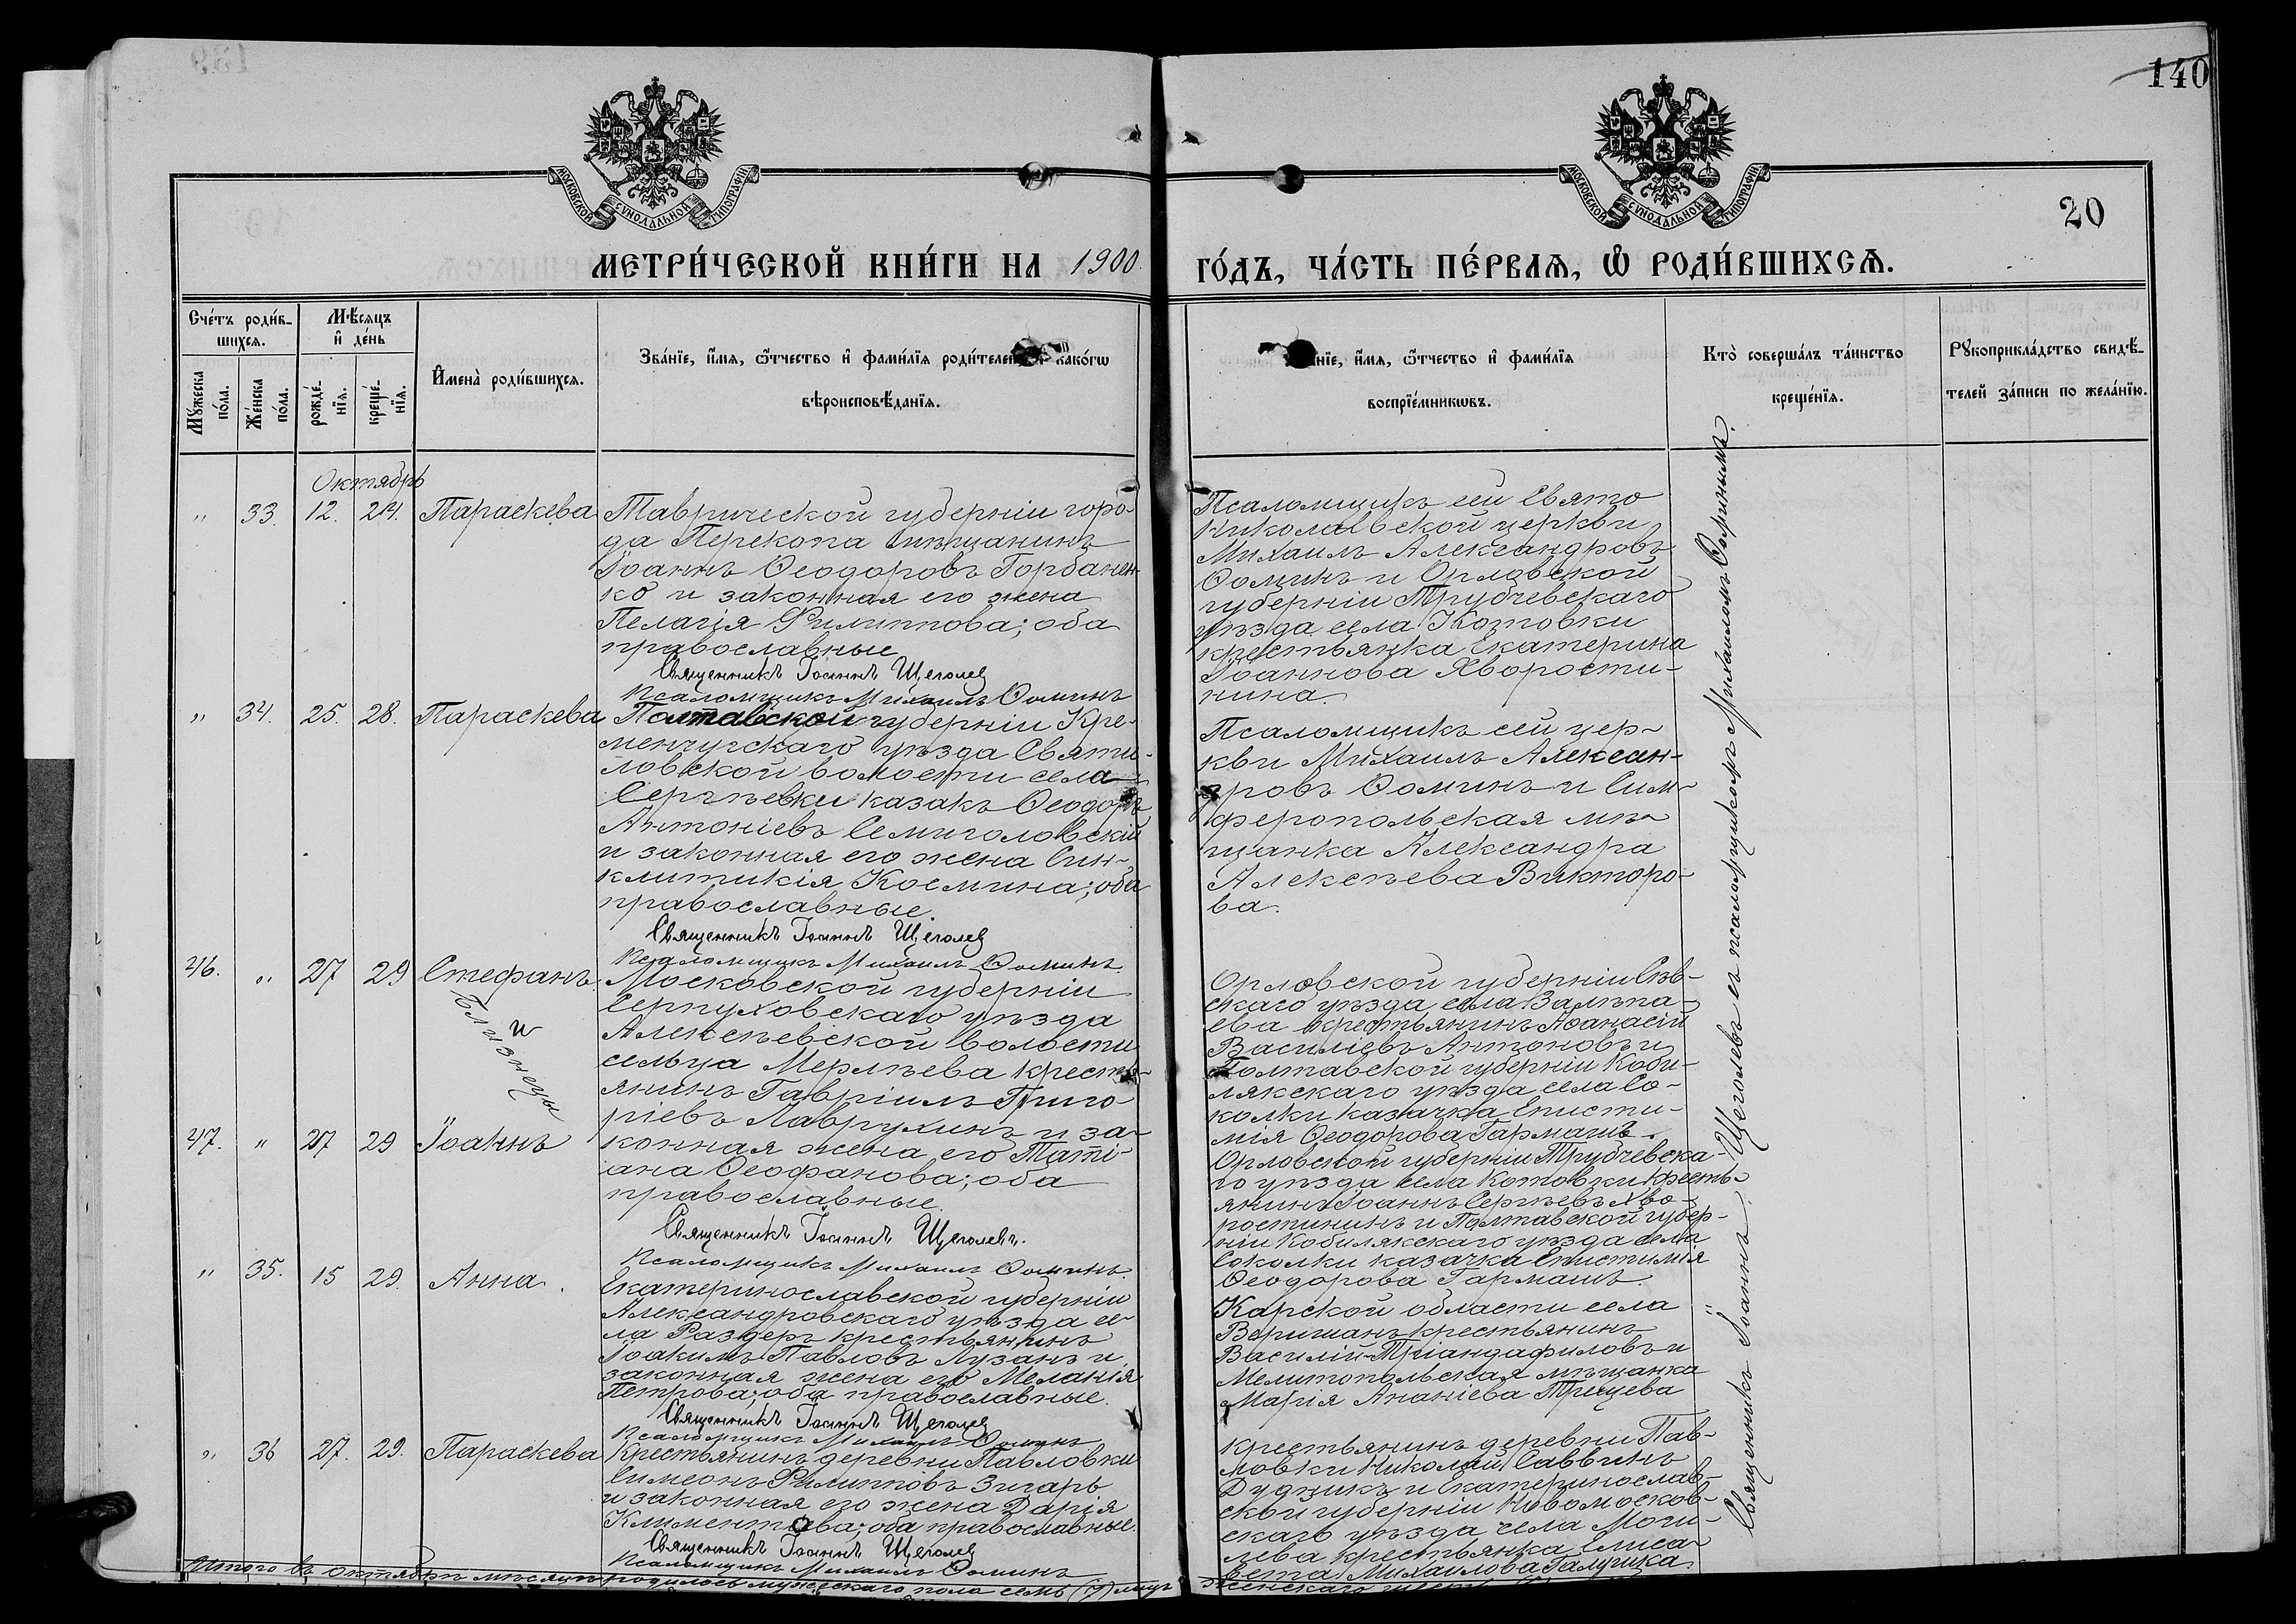 140
МОСКОВСКОЙ СУНОДАЛЬНОЙ ТИПОГРАФІИ
МОСКОВСКОЙ СУНОДАЛЬНОЙ ТИПОГРАФІИ
20
МЕТРИ́ЧЕСКОЙ КНИ́ГИ НА 1900.
ГО́ДЪ, ЧА́СТЬ ПЕ́РВАѦ, Ѡ҆ РОДИ́ВШИХСѦ.
Сче́тъ роди́в-
шихсѧ.
Мѣ́сѧцъ
и҆ де́нь
Мꙋ́жеска
по́ла.
Же́нска
по́ла.
рожде́-
нїѧ.
креще́-
нїѧ.
И҆мена̀ роди́вшихсѧ.
Зва́нїе, и҆́мѧ, ѻ҆́тчество и҆ фами́лїѧ роди́телей како́гѡ
вѣроисповѣ́данїѧ.
нїе, и҆́мѧ, ѻ҆́тчество и҆ фами́лїѧ
воспрїе́мникѡвъ.
Кто̀ соверша́лъ та́инство
креще́нїѧ.
Рꙋкоприкла́дство свидѣ́-
телей за́писи по жела́нїю.
Октябрь
" 33. 12. 24. Параскева
Таврической губерніи горо-
да Перекопа мѣщанинъ
Іоаннъ Ѳеодоровъ Горбанен-
ко и законная его жена
Пелагія Филиппова; оба
православные
Священникъ Іоаннъ Щеголев
Псаломщикъ Михаилъ Ѳоминъ
Псаломщикъ сей Свято
Николаевской церкви
Михаилъ Александровъ
Ѳоминъ и Орловской
губерніи Трубчевскаго
уѣзда села Котовки
крестьянка Екатерина
Іоаннова Хворости-
нина.
" 34. 25. 28. Параскева
Полтавской губерніи Кре-
менчугскаго уѣзда Святи-
ловской волости села
Сергѣевки казакъ Ѳеодоръ
Антоніевъ Семиголовскій
и законная его жена Син-
клитикія Космина; оба
православные.
Священникъ Іоаннъ Щеголев
Псаломщикъ Михаилъ Ѳоминъ.
Псаломщикъ сей цер-
кви Михаилъ Алексан-
дровъ Ѳоминъ и Сим-
феропольская мѣ-
щанка Александра
Алексѣева Викторо-
ва.
46. " 27 29 Стефанъ
и
близнецы
47. " 27 29 Іоаннъ
Московской губерніи
Серпуховскаго уѣзда
Алексѣевской волости
сельца Мерлѣева кресть-
янинъ Гавріилъ Григо-
ріевъ Лаврухинъ и за-
конная жена его Таті-
ана Ѳеофанова; оба
православные.
Священникъ Іоаннъ Щеголевъ.
Псаломщикъ Михаилъ Ѳоминъ.
Орловской губерніи Сѣв-
скаго уѣзда села
крестьянинъ Аѳанасій
Василіевъ Антоновъ и
Полтавской губерніи Коби-
лякскаго уѣзда села Со-
колки казачка Епистимія
Ѳеодорова Гармашъ.
Орловской губерніи Трубчевска-
го уѣзда села Котовки кресть-
янинъ Іоаннъ Сергѣевъ Хво-
ростининъ и Полтавской губер-
ніи Кобилякскаго уѣзда села
Соколки казачка Епистимія
Ѳеодорова Гармашъ.
" 35. 15 29. Анна.
Екатеринославской губерніи
Александровскаго уѣзда се-
ла Раздоръ крестьянинъ
Іоакимъ Павловъ Лузанъ и
законная жена его Меланія
Петрова; оба православные.
Священникъ Іоаннъ Щеголев
Псаломщикъ Михаилъ Ѳоминъ
Карской области села
Веришанъ крестьянинъ
Василій Тріандафиловъ и
Мелитопольская мѣщанка
Марія Ананіева
" 36 27. 29. Параскева
Крестьянинъ деревни Павловки
Симеонъ Филипповъ Зигарь
и законная его жена Дарія
Климентова; оба православные.
Священникъ Іоаннъ Щеголев
Псаломщикъ Михаилъ Ѳоминъ
Крестьянинъ деревни Пав-
ловки Николай Саввинъ
Дудникъ и Екатеринослав-
ской губерніи Новомосков-
скаго уѣзда села Моги-
лева крестьянка Елиса-
вета Михаилова Галушка.
Священникъ Іоаннъ Щеголевъ съ псаломщикомъ Михаиломъ Ѳоминымъ.
Итого въ октябрѣ мѣсяцѣ родилось мужескаго пола семь (7) лицъ женскаго